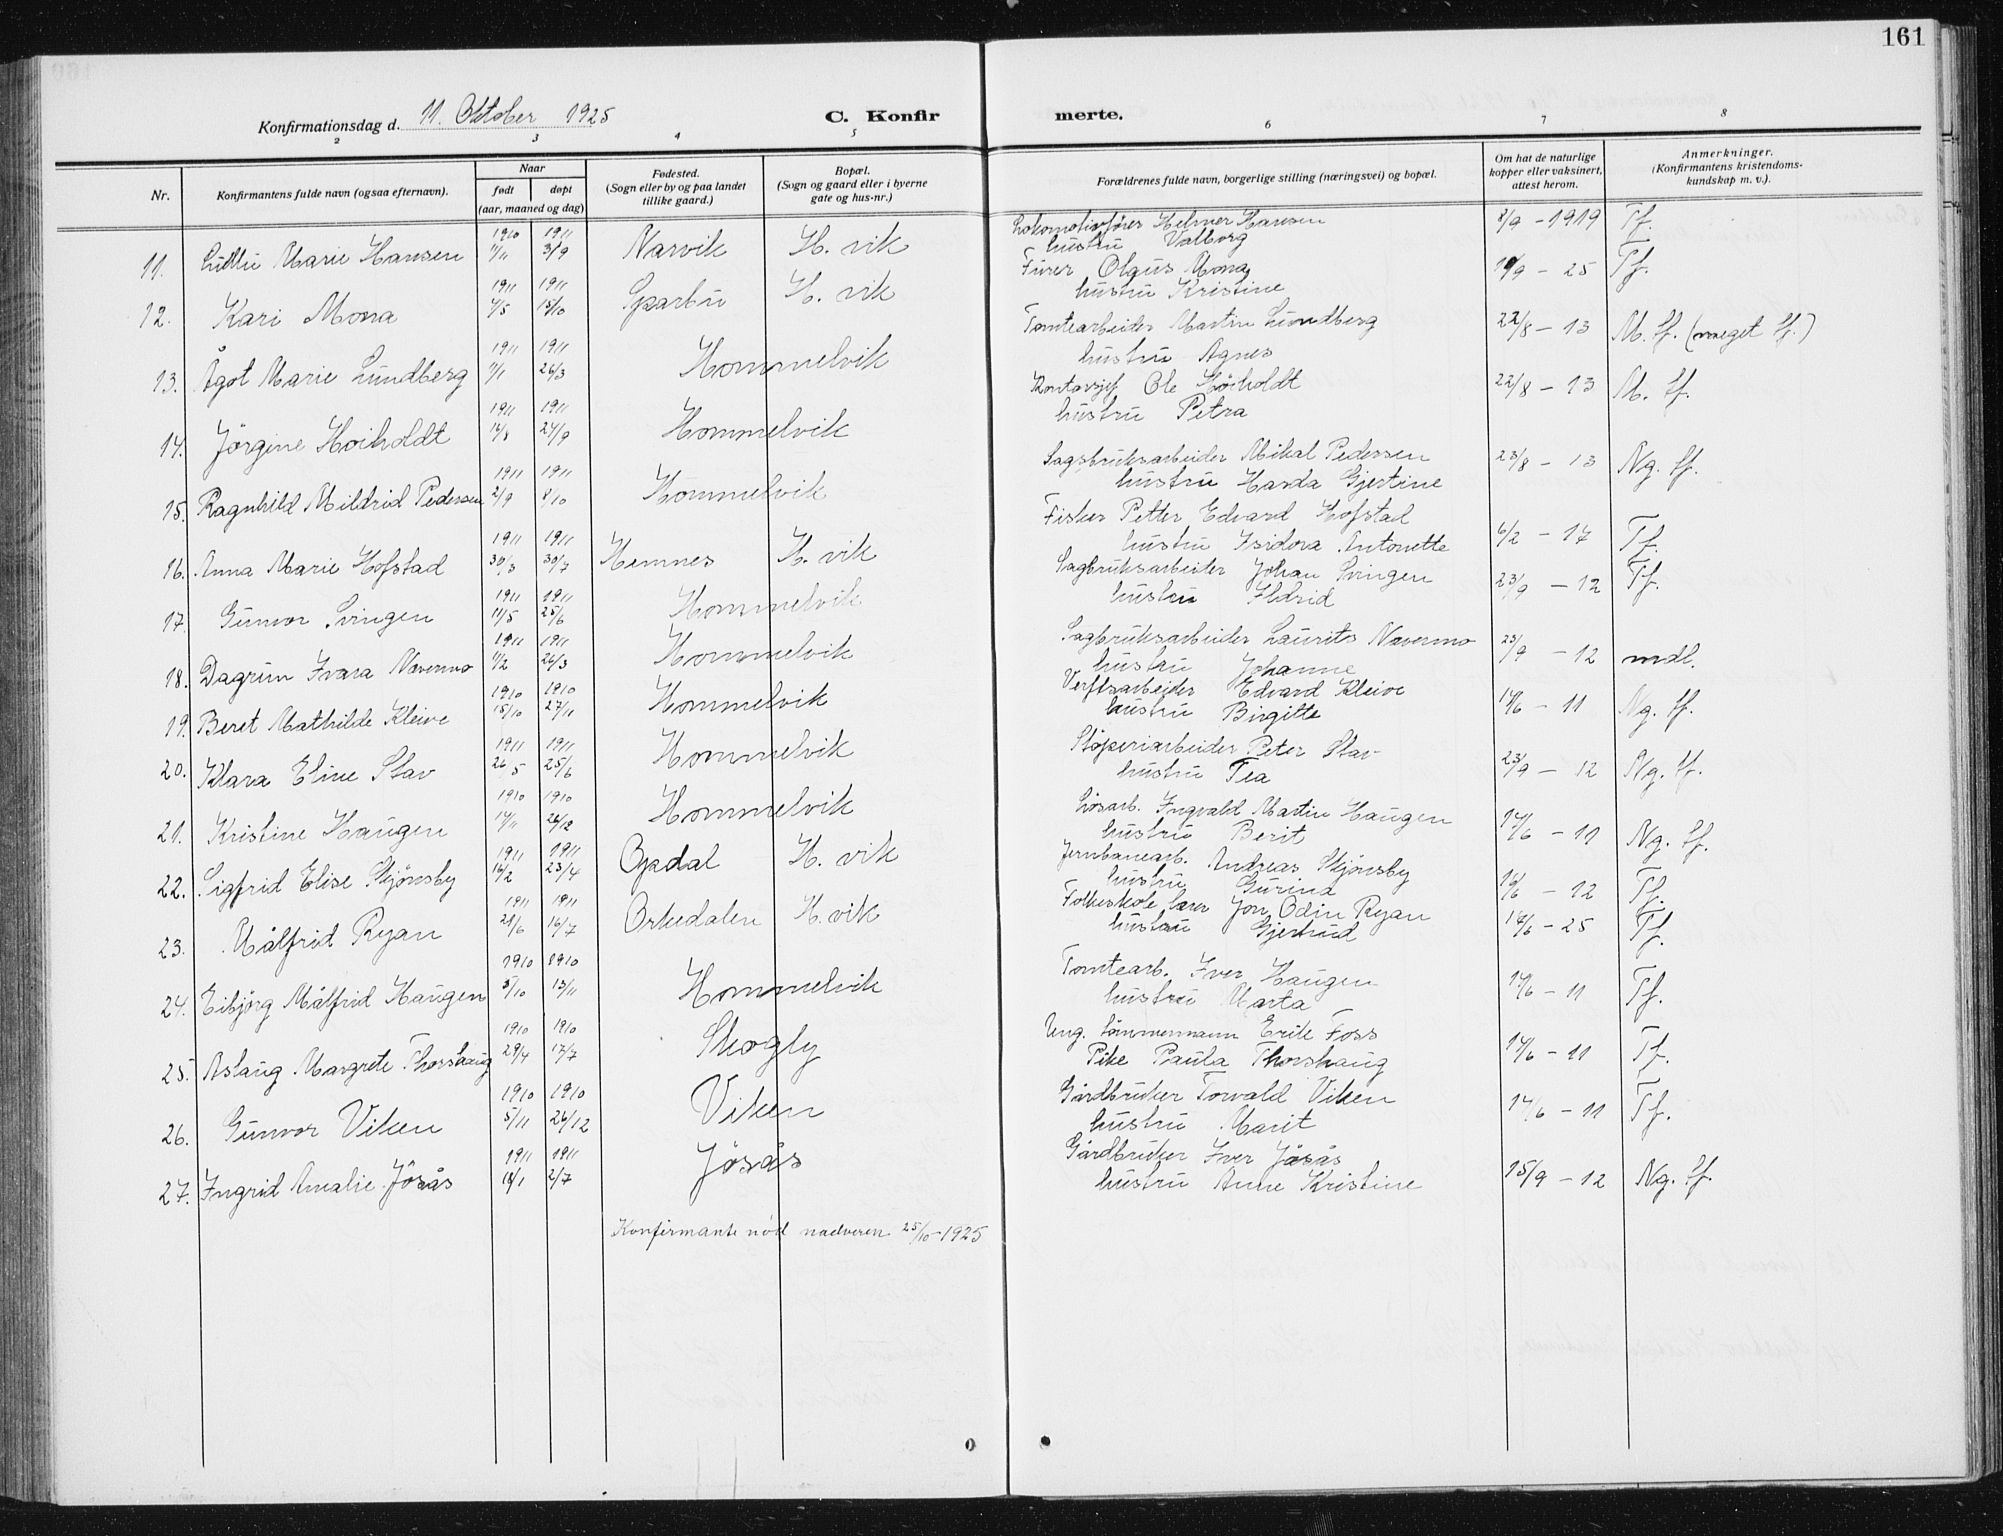 161
Konfirmationsdag d. 11. Oktober 1925
C. Konfirmerte.
2 3 4 5 6 7 8
Nr.
Konfirmantens fulde navn (ogsaa efternavn).
Naar
født
døpt
(aar, maaned og dag)
Fødested.
(Sogn eller by og paa landet
tillike gaard.)
Bopæl.
(Sogn og gaard eller i byerne
gate og hus-nr.)
Forældrenes fulde navn, borgerlige stilling (næringsvei) og bopæl.
Om hat de naturlige
kopper eller vaksinert,
attest herom.
Anmerkninger.
(Konfirmantens kristendoms-
kundskap m. v.).
11. Marie Hansen 1910 1/11 1911 3/9 Narvik H. vik Lokomotivfører Helmer Hansen 8/9 - 1919 Tf.
hustru Valborg
12. Kari Mona 1911 1/5 1911 15/10 Sparbu H. vik Furer Olgus Mona 19/9 - 25 Tf.
hustru Kristine
13. Ågot Marie Lundberg 1911 1/1 1911 26/3 Hommelvik Tomtearbeider Martin Lundberg 22/8 - 13 M. tf. (meget tf.)
hustru Agnes
14. Jörgine Hoiholdt 1911 1911 24/9 Hommelvik Kontorsjef Ole Höiholdt 22/8 - 13 M. tf.
hustru Petra
15. Ragnhild Mildrid Pedersen 1911 2/9 1911 8/10 Hommelvik Sagsbruksarbeider Mikal Pedersen 23/8 - 13 Ng. tf.
hustru Harda Gjertine
16. Anna Marie Hofstad 1911 30/3 1911 30/7 Hemnes H. vik Fisker Petter Edvard Hofstad 6/2 - 17 Tf.
hustru Isidora Antonette
17. Gunvor Svingen 1911 11/5 1911 25/6 Hommelvik Sagbruksarbeider Johan Svingen 23/9 - 12 Tf.
hustru Ildrid
18. Dagrun Ivara Navermo 1911 11/2 1911 26/3 Hommelvik Sagbruksarbeider Laurits Navermo 23/9 - 12 mdl.
hustru Johanne
19. Beret Mathilde Kleive 1910 15/10 1910 27/11 Hommelvik Verftsarbeider Edvard Kleive 14/6 - 11 Ng. tf.
hustru Birgitte
20. Klara Eline Stav 1911 26/5 1911 25/6 Hommelvik Støperiarbeider Peter Stav 23/9 - 12 Ng. tf.
hustru Tea
21. Kristine Haugen 1910 14/11 1910 26/12 Hommelvik Løsarb. Ingvald Martin Haugen 14/6 - 11 Ng. tf.
hustru Berit
22. Sigfrid Elise Skjønsby 1911 16/2 1911 23/4 Opdal H. vik Jernbanearb. Andreas Skjönsby 16/6 - 12 Tf.
hustru Gurina
23. Målfrid Ryan 1911 1911 16/7 Orkedalen H. vik Folkeskole lærer Jon Odin Ryan 18/6 - 25 Tf.
hustru Gjertrud
24. Eibjörg Målfrid Haugen 1910 5/10 1910 13/11 Hommelvik Tomtearb. Iver Haugen 14/6 - 11 Tf.
hustru Marta
25. Aslaug Margrete Thorshaug 1910 29/4 1910 17/7 Skogly Ung. tömmermann Erik Foss 14/6 - 11 Tf.
Pike Paula Thorshaug
26. Gunvor Viken 1910 5/11 1910 26/12 Viken Gårdbruker Torvald Viken 14/6 - 11 Tf.
hustru Marit
27. Ingrid Amalie Jösås 1911 18/1 1911 2/7 Jösås Gårdbruker Iver Jøsås 15/9 - 12 Ng. tf.
hustru Anne Kristine
Konfirmante nöd nadveren 25/10-1925